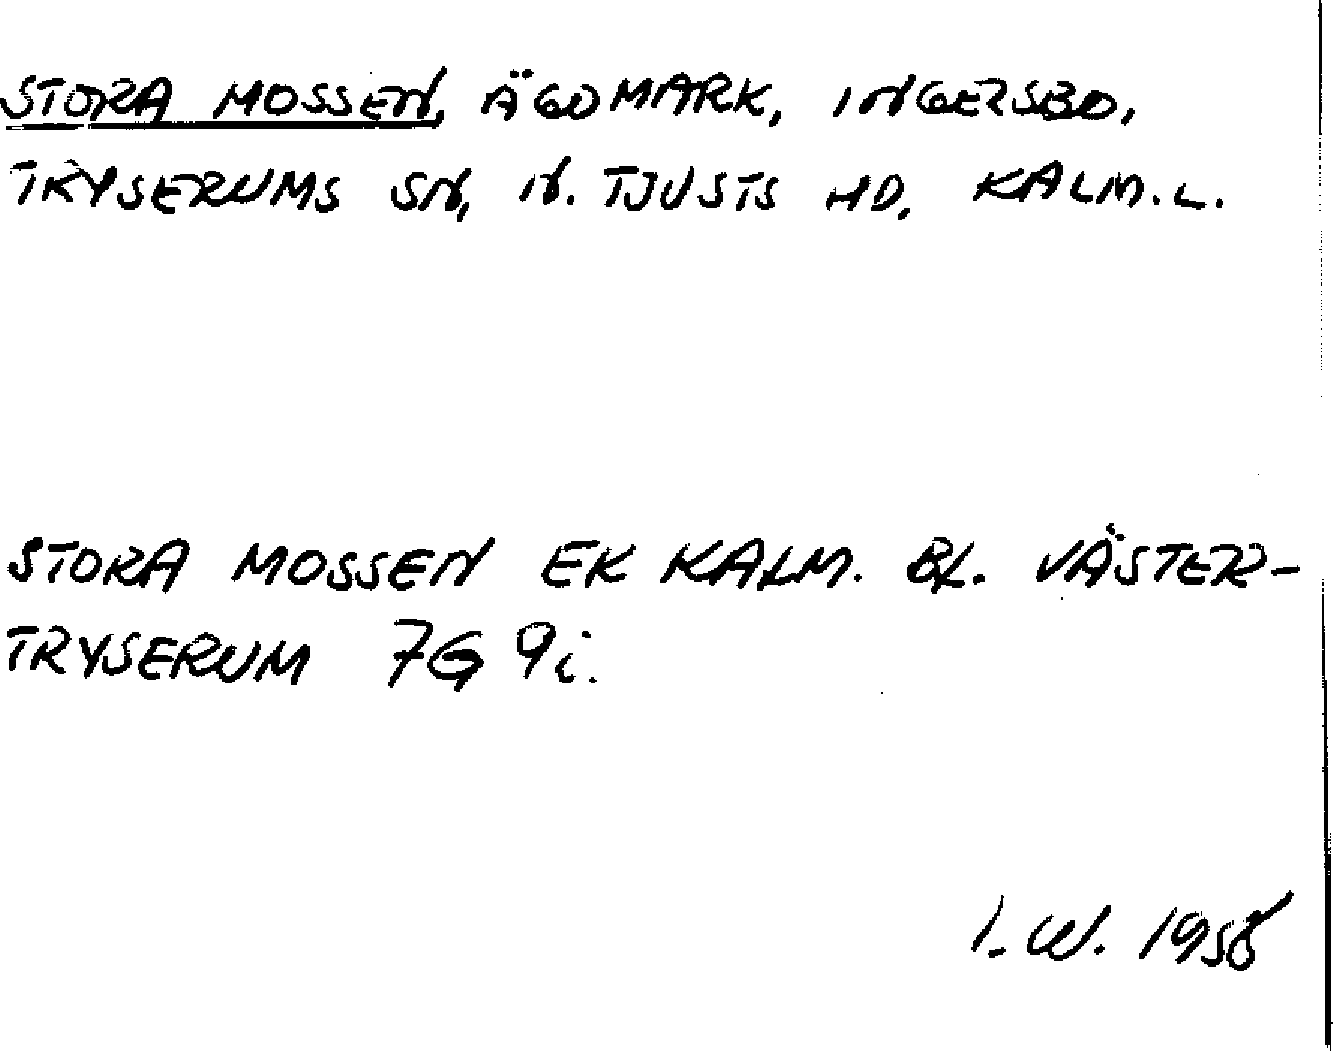 STORA MOSSEN, ÄGOMARK, INGERSBO,
TRYSERUMS SN, N. TJUSTS HD, KALM. L.
STORA MOSSEN EK KALM. BL. VÄSTER-
TRYSERUM 7G 9i.
I. W. 1958